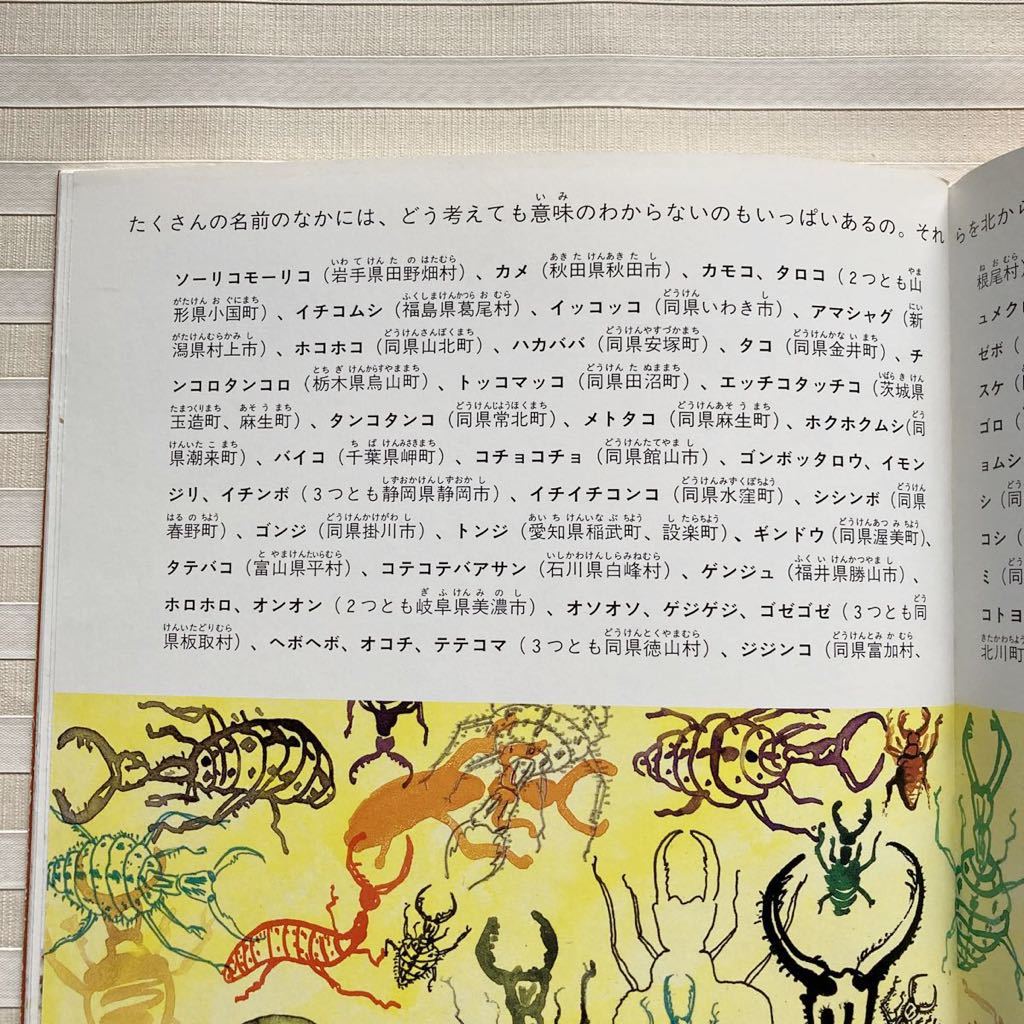 たくさんの名前のなかには、どう考えても意味のわからないのもいっぱいあるの。それらを北から
ソーリコモーリコ（岩手県田野畑村）、カメ（秋田県秋田市）、カモコ、タロコ（2つとも山
形県小国町）、イチコムシ（福島県葛尾村）、イッコッコ（同県いわき市）、アマシャグ（新
潟県村上市）、ホコホコ（同県山北町）、ハカババ（同県安塚町）、タコ（同県金井町）、チ
ンコロタンコロ（栃木県烏山町）、トッコマッコ（同県田沼町）、エッチコタッチコ（茨城県
玉造町、麻生町）、タンコタンコ（同県常北町）、メトタコ（同県麻生町）、ホクホクムシ（同
県潮来町）、バイコ（千葉県岬町）、コチョコチョ（同県館山市）、ゴンボッタロウ、イモン
ジリ、イチンボ（3つとも静岡県静岡市）、イチイチコンコ（同県水窪町）、シシンボ（同県
春野町）、ゴンジ（同県掛川市）、トンジ（愛知県稲武町、設楽町）、ギンドウ（同県渥美町）、
タテバコ（富山県平村）、コテコテバアサン（石川県白峰村）、ゲンジュ（福井県勝山市）、
ホロホロ、オンオン（2つとも岐阜県美濃市）、オソオソ、ゲジゲジ、ゴゼゴゼ（3つとも同
県板取村）、ヘボヘボ、オコチ、テテコマ（3つとも同県徳山村）、ジジンコ（同県富加村、
根尾村）
ュメク
ゼボ（
スケ（
ゴロ（
ョムシ
シ（同
コシ（
ミ（同
コトヨ
北川町